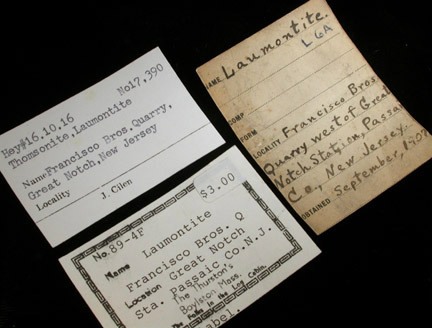 Hey#16.10.16 No17,390
Thomsonite,Laumontite
Name Francisco Bros.Quarry,
Great Notch,New Jersey
Locality
J. Cilen
NAME Laumontite.
L6A
COMP
FORM
LOCALITY Francisco Bros.
Quarry west of Great
Notch Station, Passaic
Co., New Jersey.
OBTAINED September, 1907
$3.00
No.89-4F
Name Laumontite
Francisco Bros. Q
Location Great Notch
Sta. Passaic Co.N.J.
The Thurston's
Boylston Mass.
The Folks in the Log Cabin.